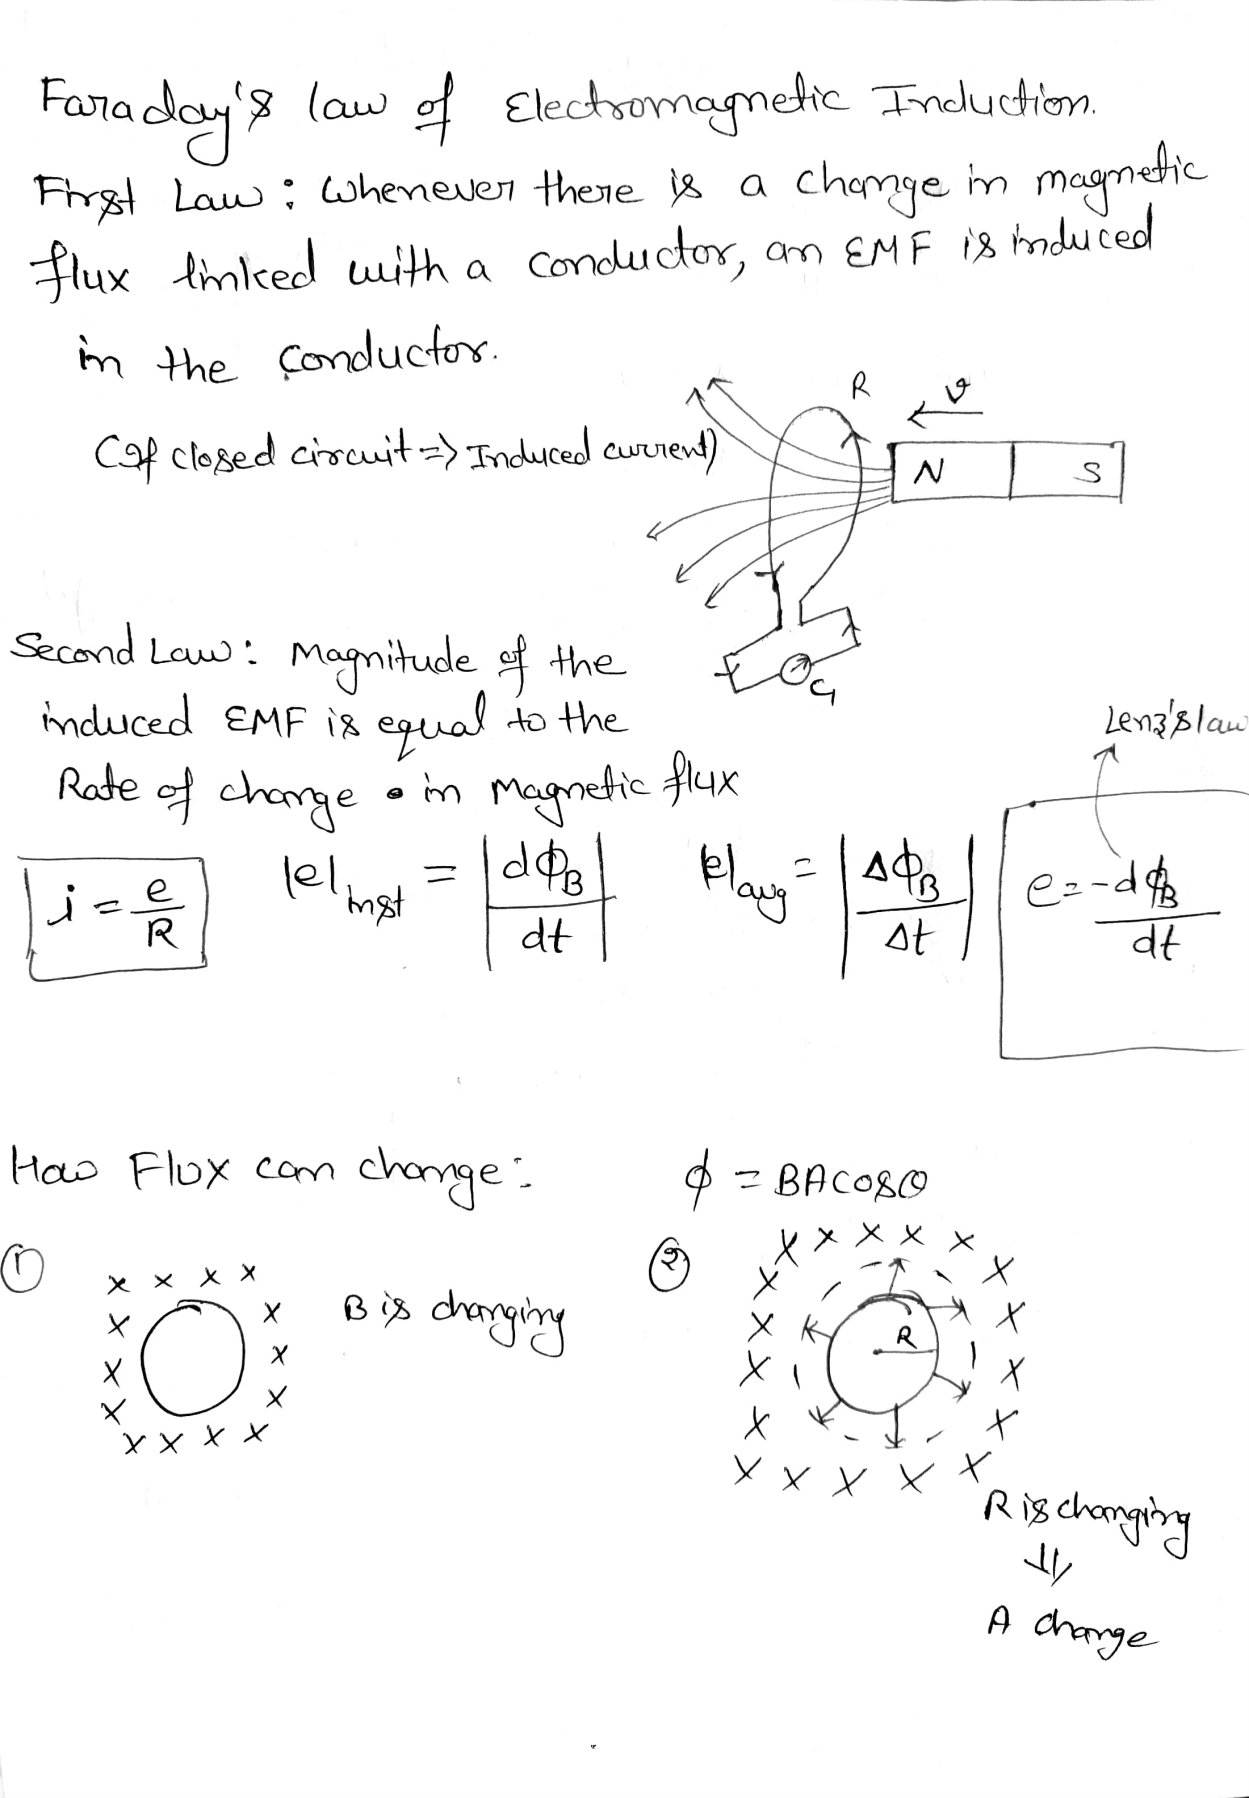 Faraday's law of Electromagnetic Induction.
First Law: Whenever there is a change in magnetic
flux linked with a conductor, an EMF is induced
in the conductor.
R
v
(If closed circuit => Induced current)
N S
G
Second Law: Magnitude of the
induced EMF is equal to the
Rate of change in Magnetic flux
Lenz's law
i = e/R |e|inst = |dϕB/dt| |e|avg = |ΔϕB/Δt| e = -dϕB/dt
How Flux can change: ϕ = BACOSθ
① B is changing
② R
R is changing
⇓
A change